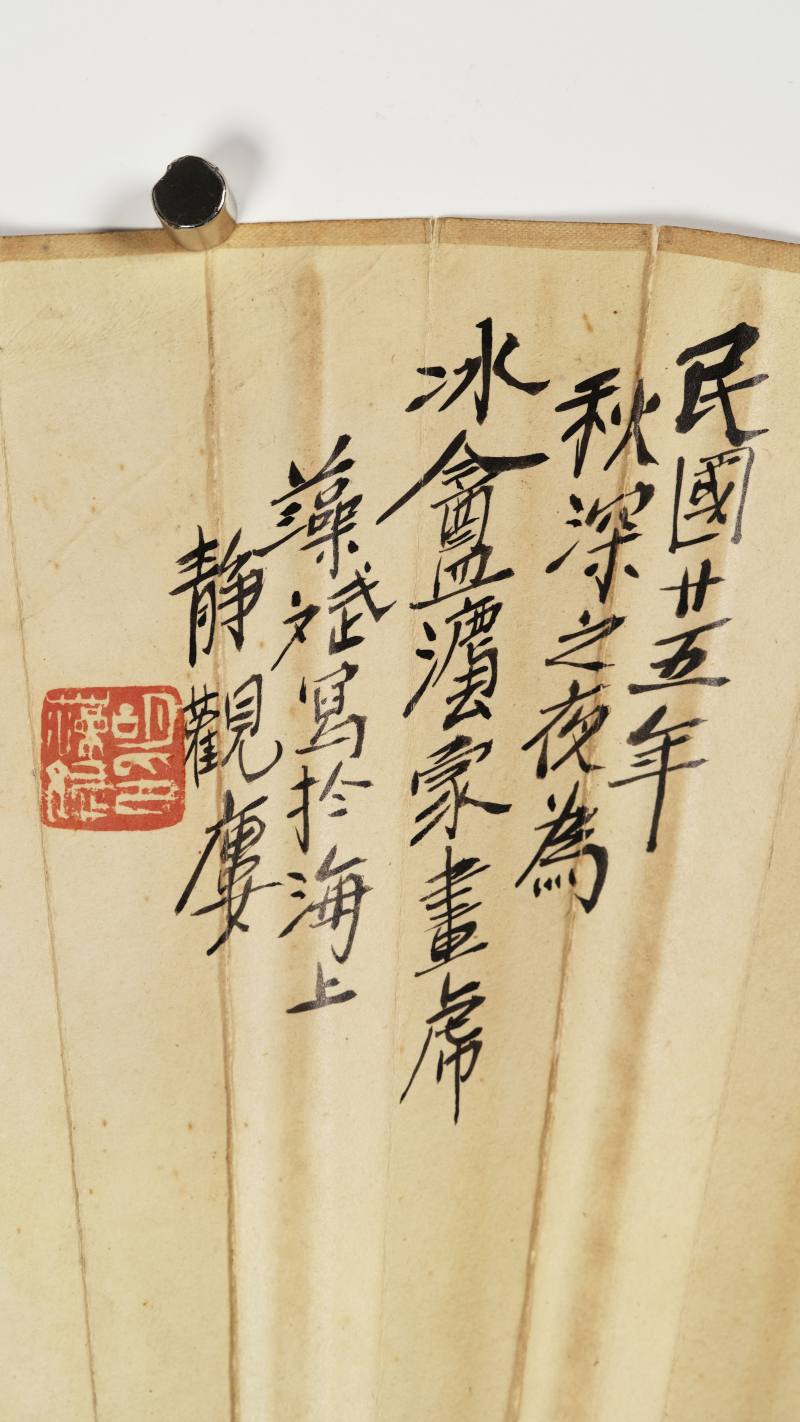 民國廿五年
秋深之夜為
冰盦灋家畫虎
藻斌寫於海上
静觀廔